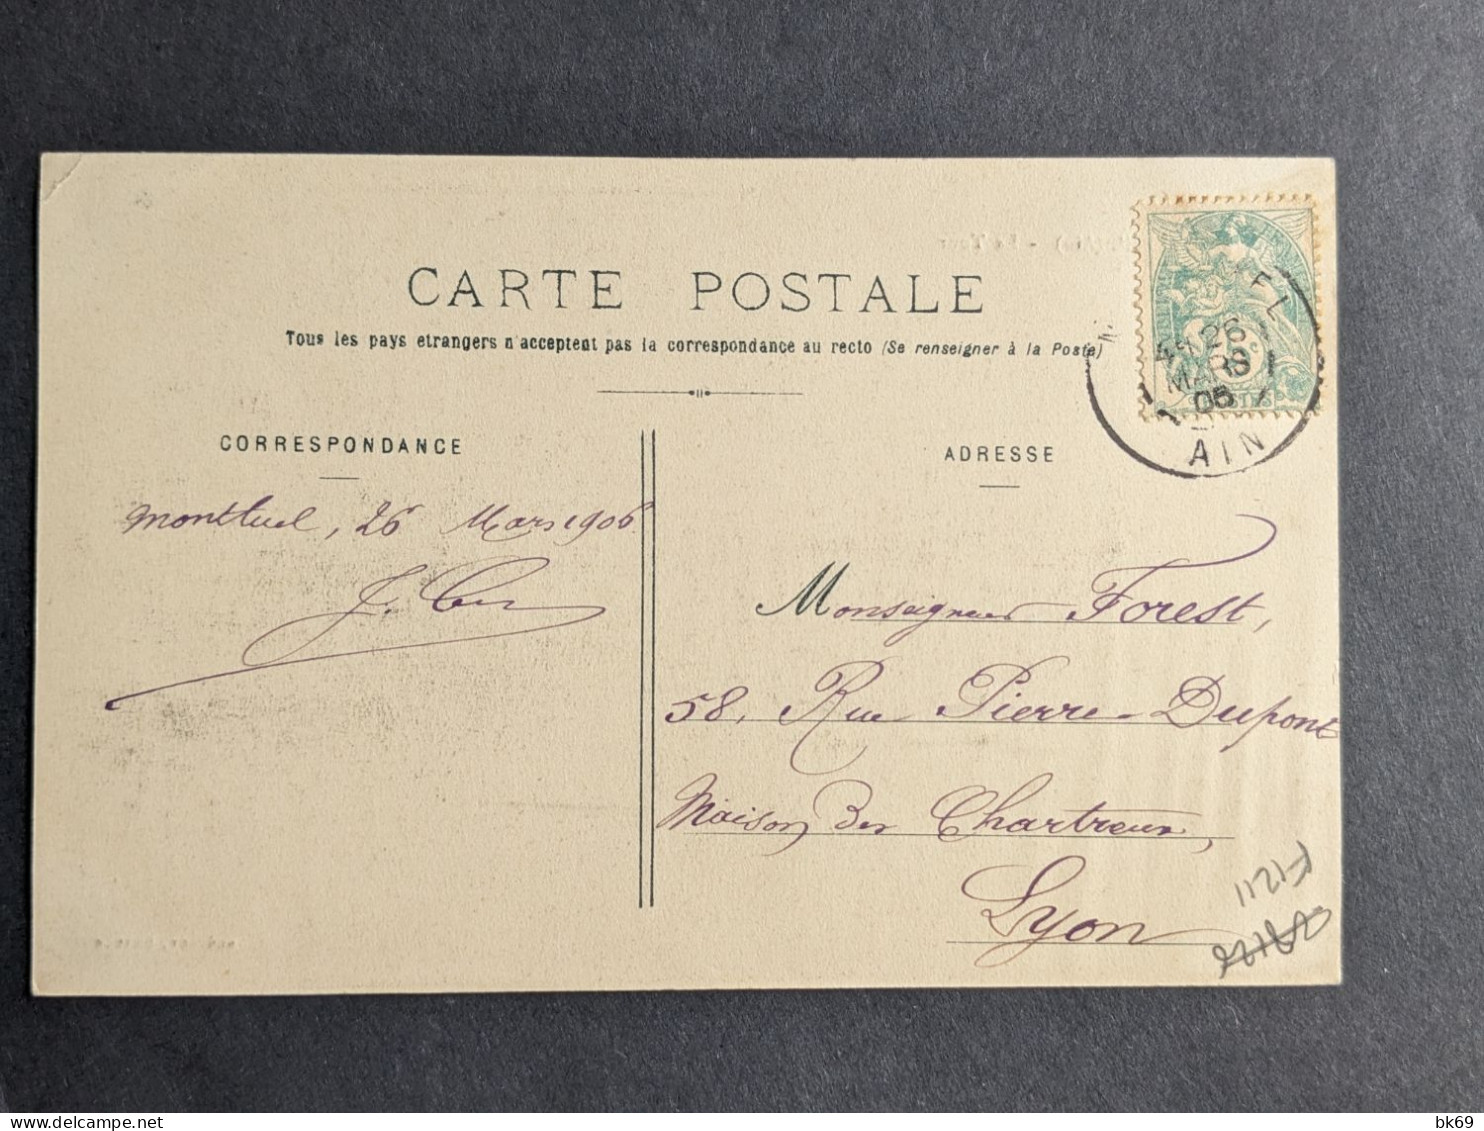 CARTE POSTALE
Tous les pays etrangers n'acceptent pas la correspondance au recto (Se renseigner à la Poste)
CORRESPONDANCE
ADRESSE
EL
26
MARS
06
AIN
Montluel, 26 Mars 1906
Monseigneur Forest,
58, Rue Pierre-Dupont
Maison des Chartreux,
Lyon
F1211
bk69
delcampe.net